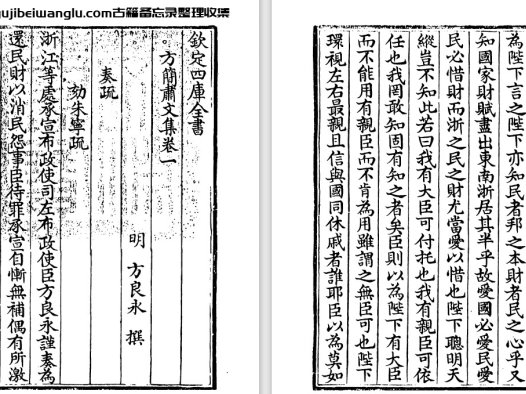 gujibeiwanglu.com古籍备忘录整理收集
欽定四庫全書
方簡肅文集卷一
明 方良永 撰
奏疏
劾朱寧疏
浙江等處承宣布政使司左布政使臣方良永謹奏為
還民財以消民怨事臣待罪承宣自慚無補偶有所激
為陛下言之陛下亦知民者邦之本財者民之心乎又
知國家財賦盡出東南浙居其半乎故愛國必愛民愛
民必惜財而浙之民之財尤當愛以惜也陛下聰明天
縱豈不知此若曰我有大臣可付托也我有親臣可依
任也我罔敢知固有知之者矣臣則以為陛下有大臣
而不能用有親臣而不肯為用雖謂之無臣可也陛下
環視左右最親且信與國同休戚者誰耶臣以為莫如